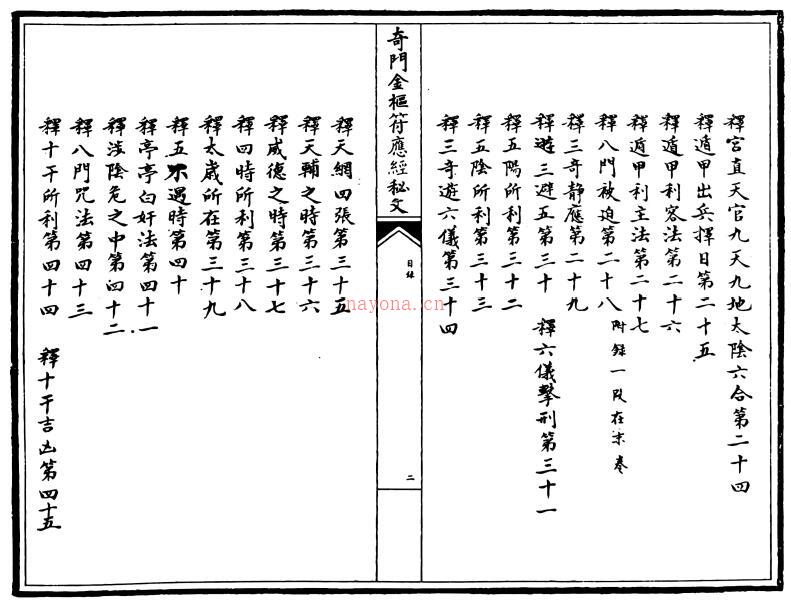 釋宮直天官九天九地太陰六合第二十四
釋遁甲出兵擇日第二十五
釋遁甲利客法第二十六
釋遁甲利主法第二十七
釋八門被迫第二十八 附錄一段在末卷
釋三奇静應第二十九
釋遊三避五第三十 釋六儀擊刑第三十一
釋五陽所利第三十二
釋五陰所利第三十三
釋三奇遊六儀第三十四
奇門金樞符應經秘文
目錄
二
釋天網四張第三十五
釋天輔之時第三十六
釋威德之時第三十七
釋四時所利第三十八
釋太歲所在第三十九
釋五不遇時第四十
釋亭亭白奸法第四十一
釋涉陰危之中第四十二
釋八門咒法第四十三
釋十干所利第四十四 釋十干吉凶第四十五
nayona.cn